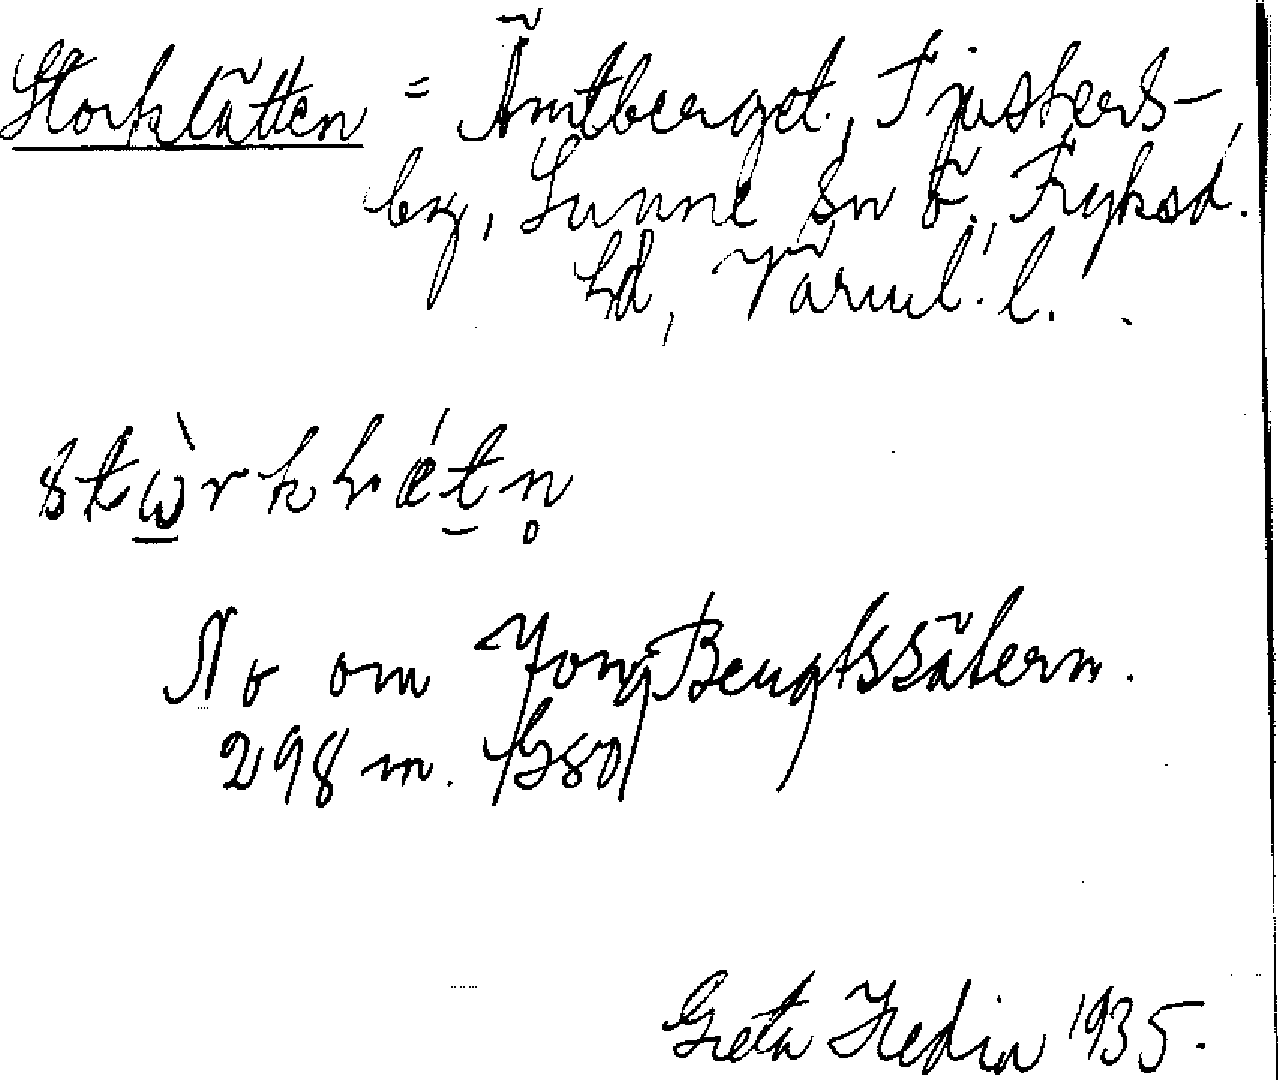 Storklätten = Ämtberget, Tjusters-
by, Sunne sn Ö., Fryksd.
hd, Värml. l.
No om Jong Bengtssätern.
298 m.
Greta Hedin 1935.